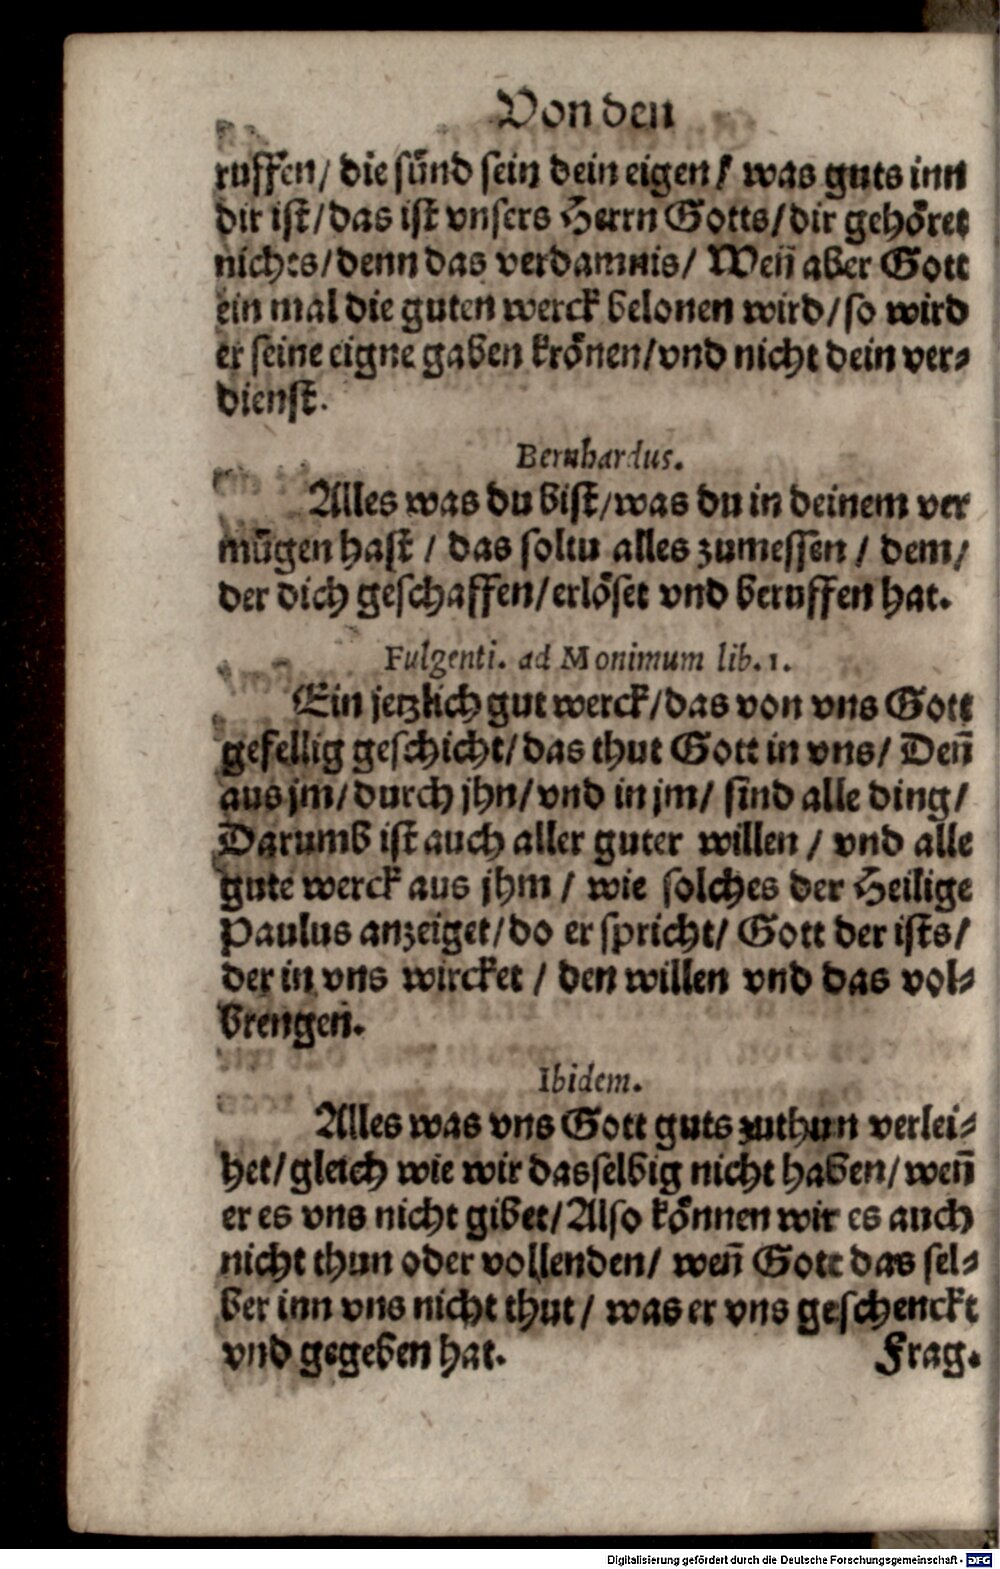 Von den
ruffen/ die sünd sein dein eigen/ was guts inn
dir ist/das ist vnsers Herrn Gotts/dir gehöret
nichts/denn das verdamnis/ Weñ aber Gott
ein mal die guten werck belonen wird/so wird
er seine eigne gaben krönen/vnd nicht dein ver-
dienst.
Bernhardus.
Alles was du bist/was du in deinem ver
mügen hast / das soltu alles zumessen / dem/
der dich geschaffen/erlöset vnd beruffen hat.
Fulgenti. ad Monimum lib. 1.
Ein jetzlich gut werck/das von vns Gott
gefellig geschicht/das thut Gott in vns/ Deñ
aus jm/durch jhn/vnd in jm/ sind alle ding/
Darumb ist auch aller guter willen / vnd alle
gute werck aus jhm / wie solches der Heilige
Paulus anzeiget/do er spricht/ Gott der ists/
der in vns wircket / den willen vnd das vol-
brengen.
Ibidem.
Alles was vns Gott guts zuthun verlei-
het/gleich wie wir dasselbig nicht haben/weñ
er es vns nicht gibet/Also können wir es auch
nicht thun oder vollenden/ weñ Gott das sel-
ber inn vns nicht thut/ was er vns geschenckt
vnd gegeben hat. Frag.
Digitalisierung gefördert durch die Deutsche Forschungsgemeinschaft - DFG